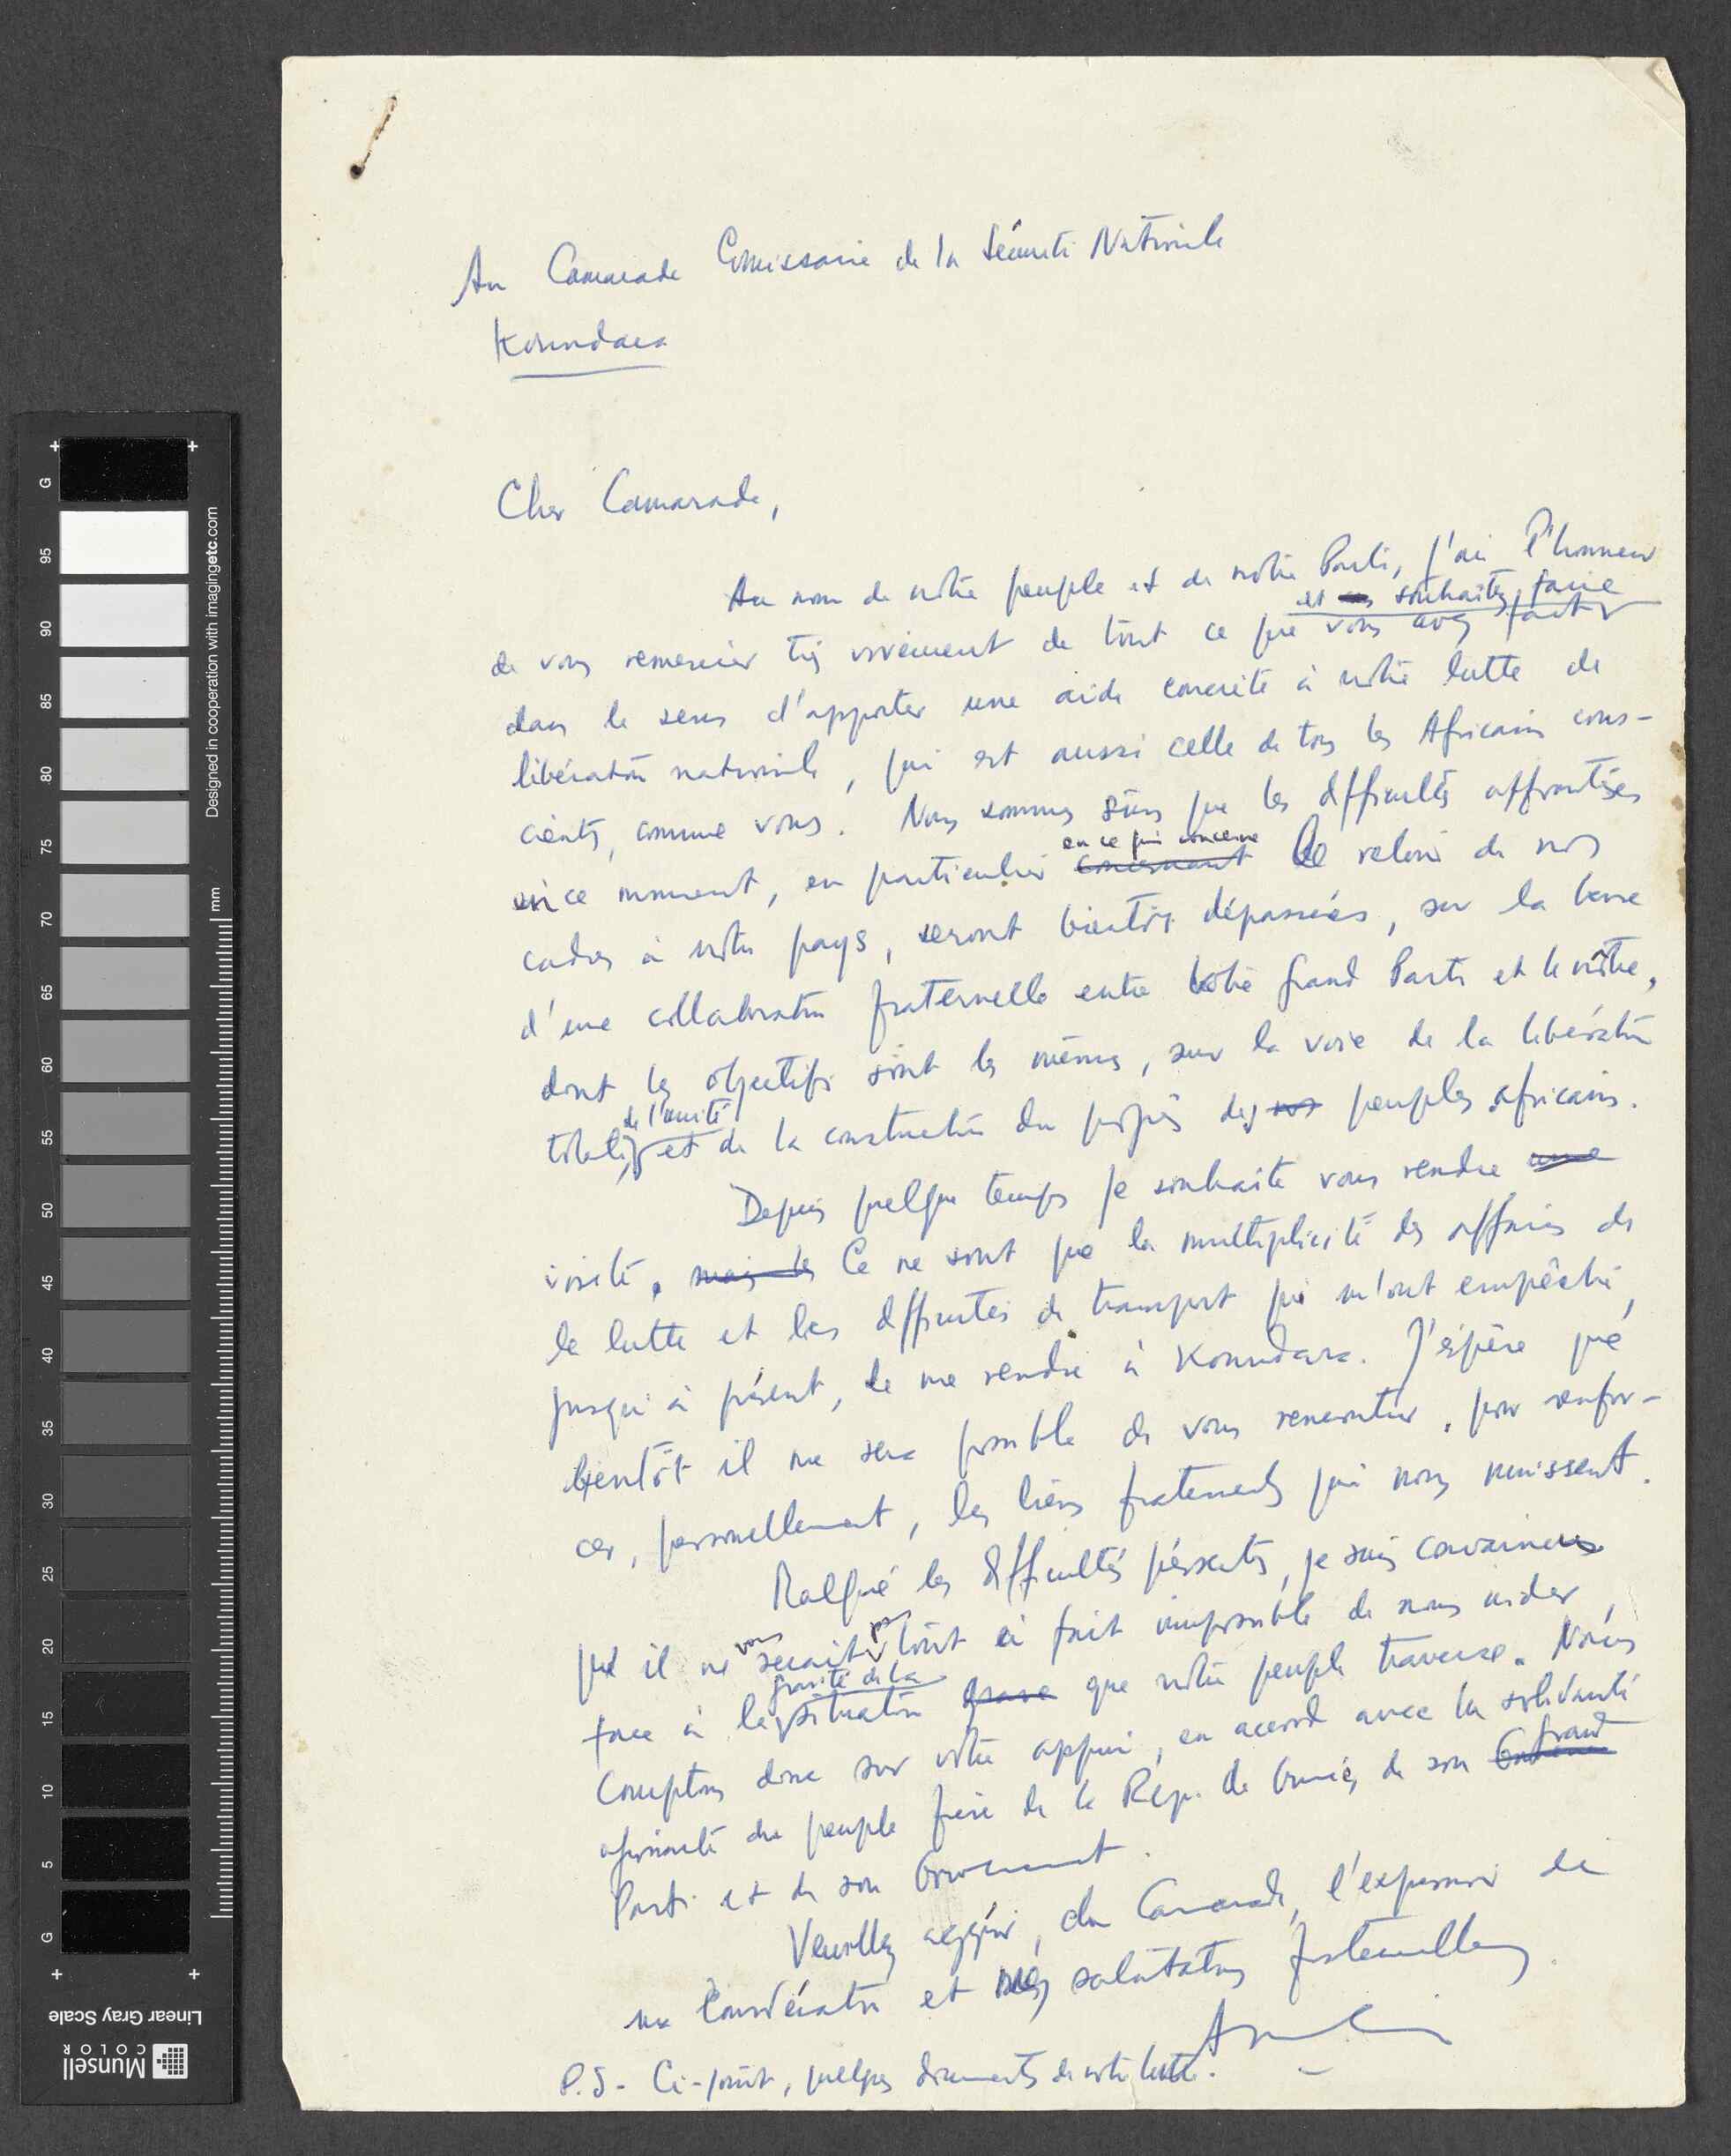 Au Camarade Commissaire de la Sécurité Nationale
Koundara
Cher Camarade,
Au nom de notre peuple et de notre Parti, j'ai l'honneur
et souhaitez faire
de vous remercier très vivement de tout ce que vous avez fait
dans le sens d'apporter une aide concrète à notre lutte de
libération nationale, qui est aussi celle de tous les Africains cons-
cients, comme vous. Nous sommes sûrs que les difficultés affrontées
en ce qui concerne
en ce moment, en particulier concernant le retour de nos
cadres à notre pays, seront bientôt dépassées, sur la base
d'une collaboration fraternelle entre votre grand Parti et le nôtre,
dont les objectifs sont les mêmes, sur la voie de la libération
de l'unité
totale, et de la construction du progrès des nos peuples africains.
Depuis quelque temps je souhaite vous rendre une
visite. mais les Ce ne sont que la multiplicité des affaires de
la lutte et les difficultés de transport qui m'ont empêché,
jusqu'à présent, de me rendre à Koundara. J'éspère que
bientôt il me sera possible de vous rencontrer, pour renfor-
cer, personellement, les liens fraternels qui nous unissent.
Malgré les difficultés présentes, je suis convaincu
vous pas
que il ne serait tout à fait impossible de nous aider,
gravité de la
face à la situation grave que notre peuple traverse. Nous
comptons donc sur votre appui, en accord avec la solidarité
grand
agissante du peuple frère de la Rép. de Guinée, de son
Parti et de son Gouvernement.
Veuillez agréer, cher Camarade, l'expression de
ma considération et mes salutations fraternelles.
P.S- Ci-joint, quelques documents de notre lutte.